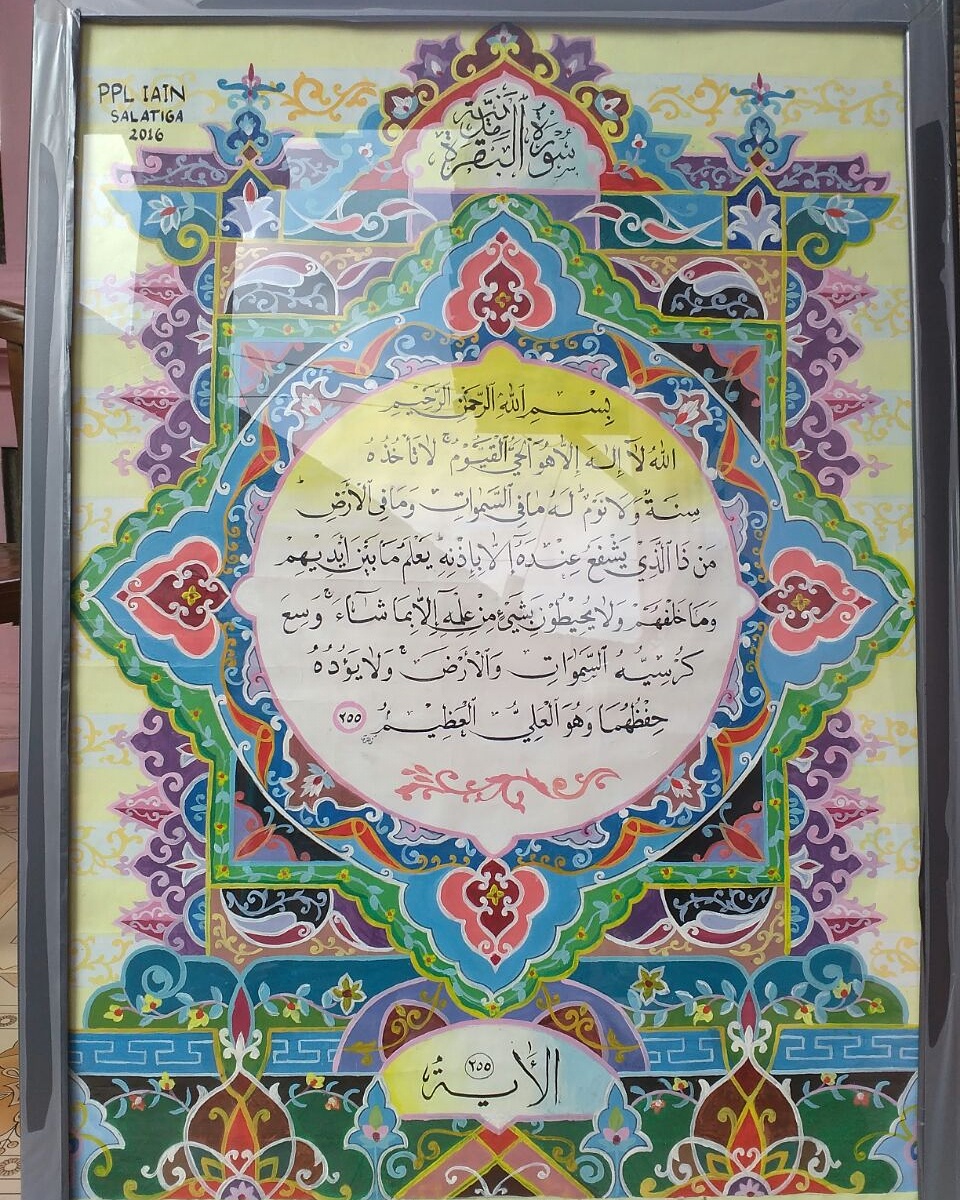 PPL IAIN
SALATIGA
2016
سُوْرَةُ الْبَقَرَةِ
بِسْمِ اللهِ الرَّحْمٰنِ الرَّحِيْمِ
اَللهُ لَآ اِلٰهَ اِلَّا هُوَ الْحَيُّ الْقَيُّوْمُ ۚ لَا تَأْخُذُهٗ
سِنَةٌ وَّلَا نَوْمٌ ۗ لَهٗ مَا فِى السَّمٰوَاتِ وَمَا فِى الْاَرْضِ ۗ
مَنْ ذَا الَّذِيْ يَشْفَعُ عِنْدَهٗٓ اِلَّا بِاِذْنِهٖ ۗ يَعْلَمُ مَا بَيْنَ اَيْدِيْهِمْ
وَمَا خَلْفَهُمْ وَلَا يُحِيْطُوْنَ بِشَيْءٍ مِّنْ عِلْمِهٖٓ اِلَّا بِمَا شَاءَ ۚ وَسِعَ
كُرْسِيُّهُ السَّمٰوَاتِ وَالْاَرْضَ ۚ وَلَا يَؤُدُهٗ
حِفْظُهُمَا وَهُوَ الْعَلِيُّ الْعَظِيْمُ ٢٥٥
الْاٰية ٢٥٥